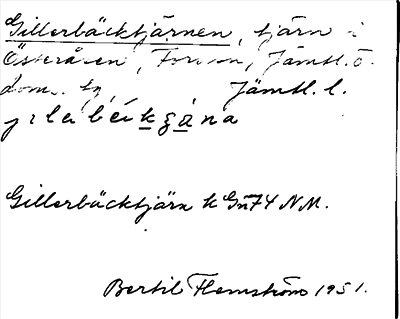 Gillerbäcktjärnen, tjärn i
Österåsen, Forsson, Jämtl. ö.
doms. Jämtl. l.
Gillerbäcktjärn k Gn74 NM.
Bertil Flemström 1951.